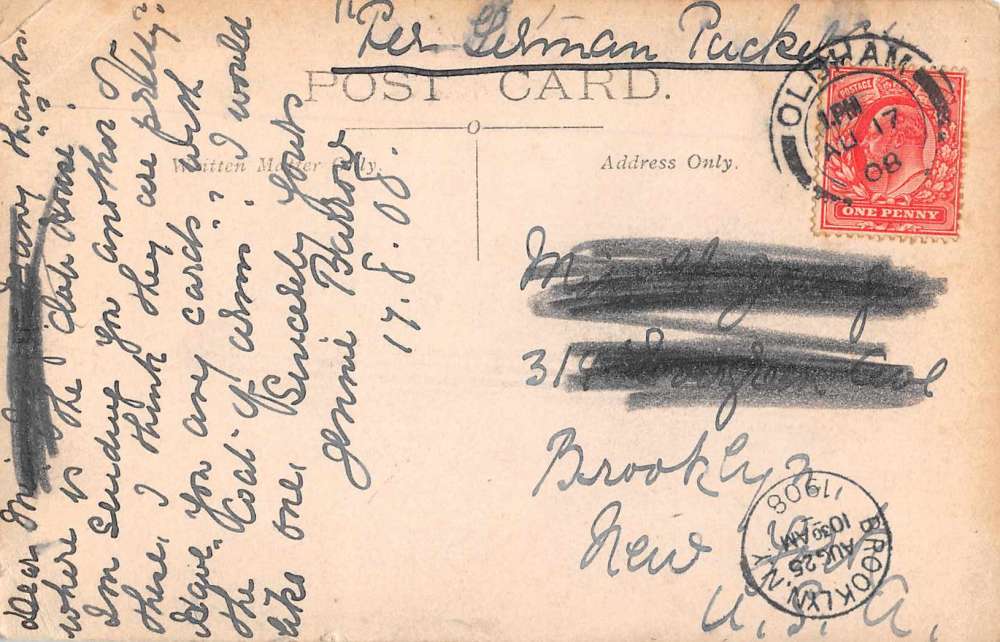 "Per German Packet
POST CARD.
Written Matter Only.
Address Only.
OLDHAM
1 PM
AU 17
08
POSTAGE
ONE PENNY
Dear Many thanks.
where is the
I'm sending you another 2 of
these, I think they are pretty?
"Have" you any cards "with
the "Coat of arms"? I would
like one, Sincerely Yours
Jennie Barrow
17.8.08.
Miss
319 Ave
Brooklyn
New York
U.S.A.
BROOKLYN, N.Y.
AUG 25
10 30 AM
1908